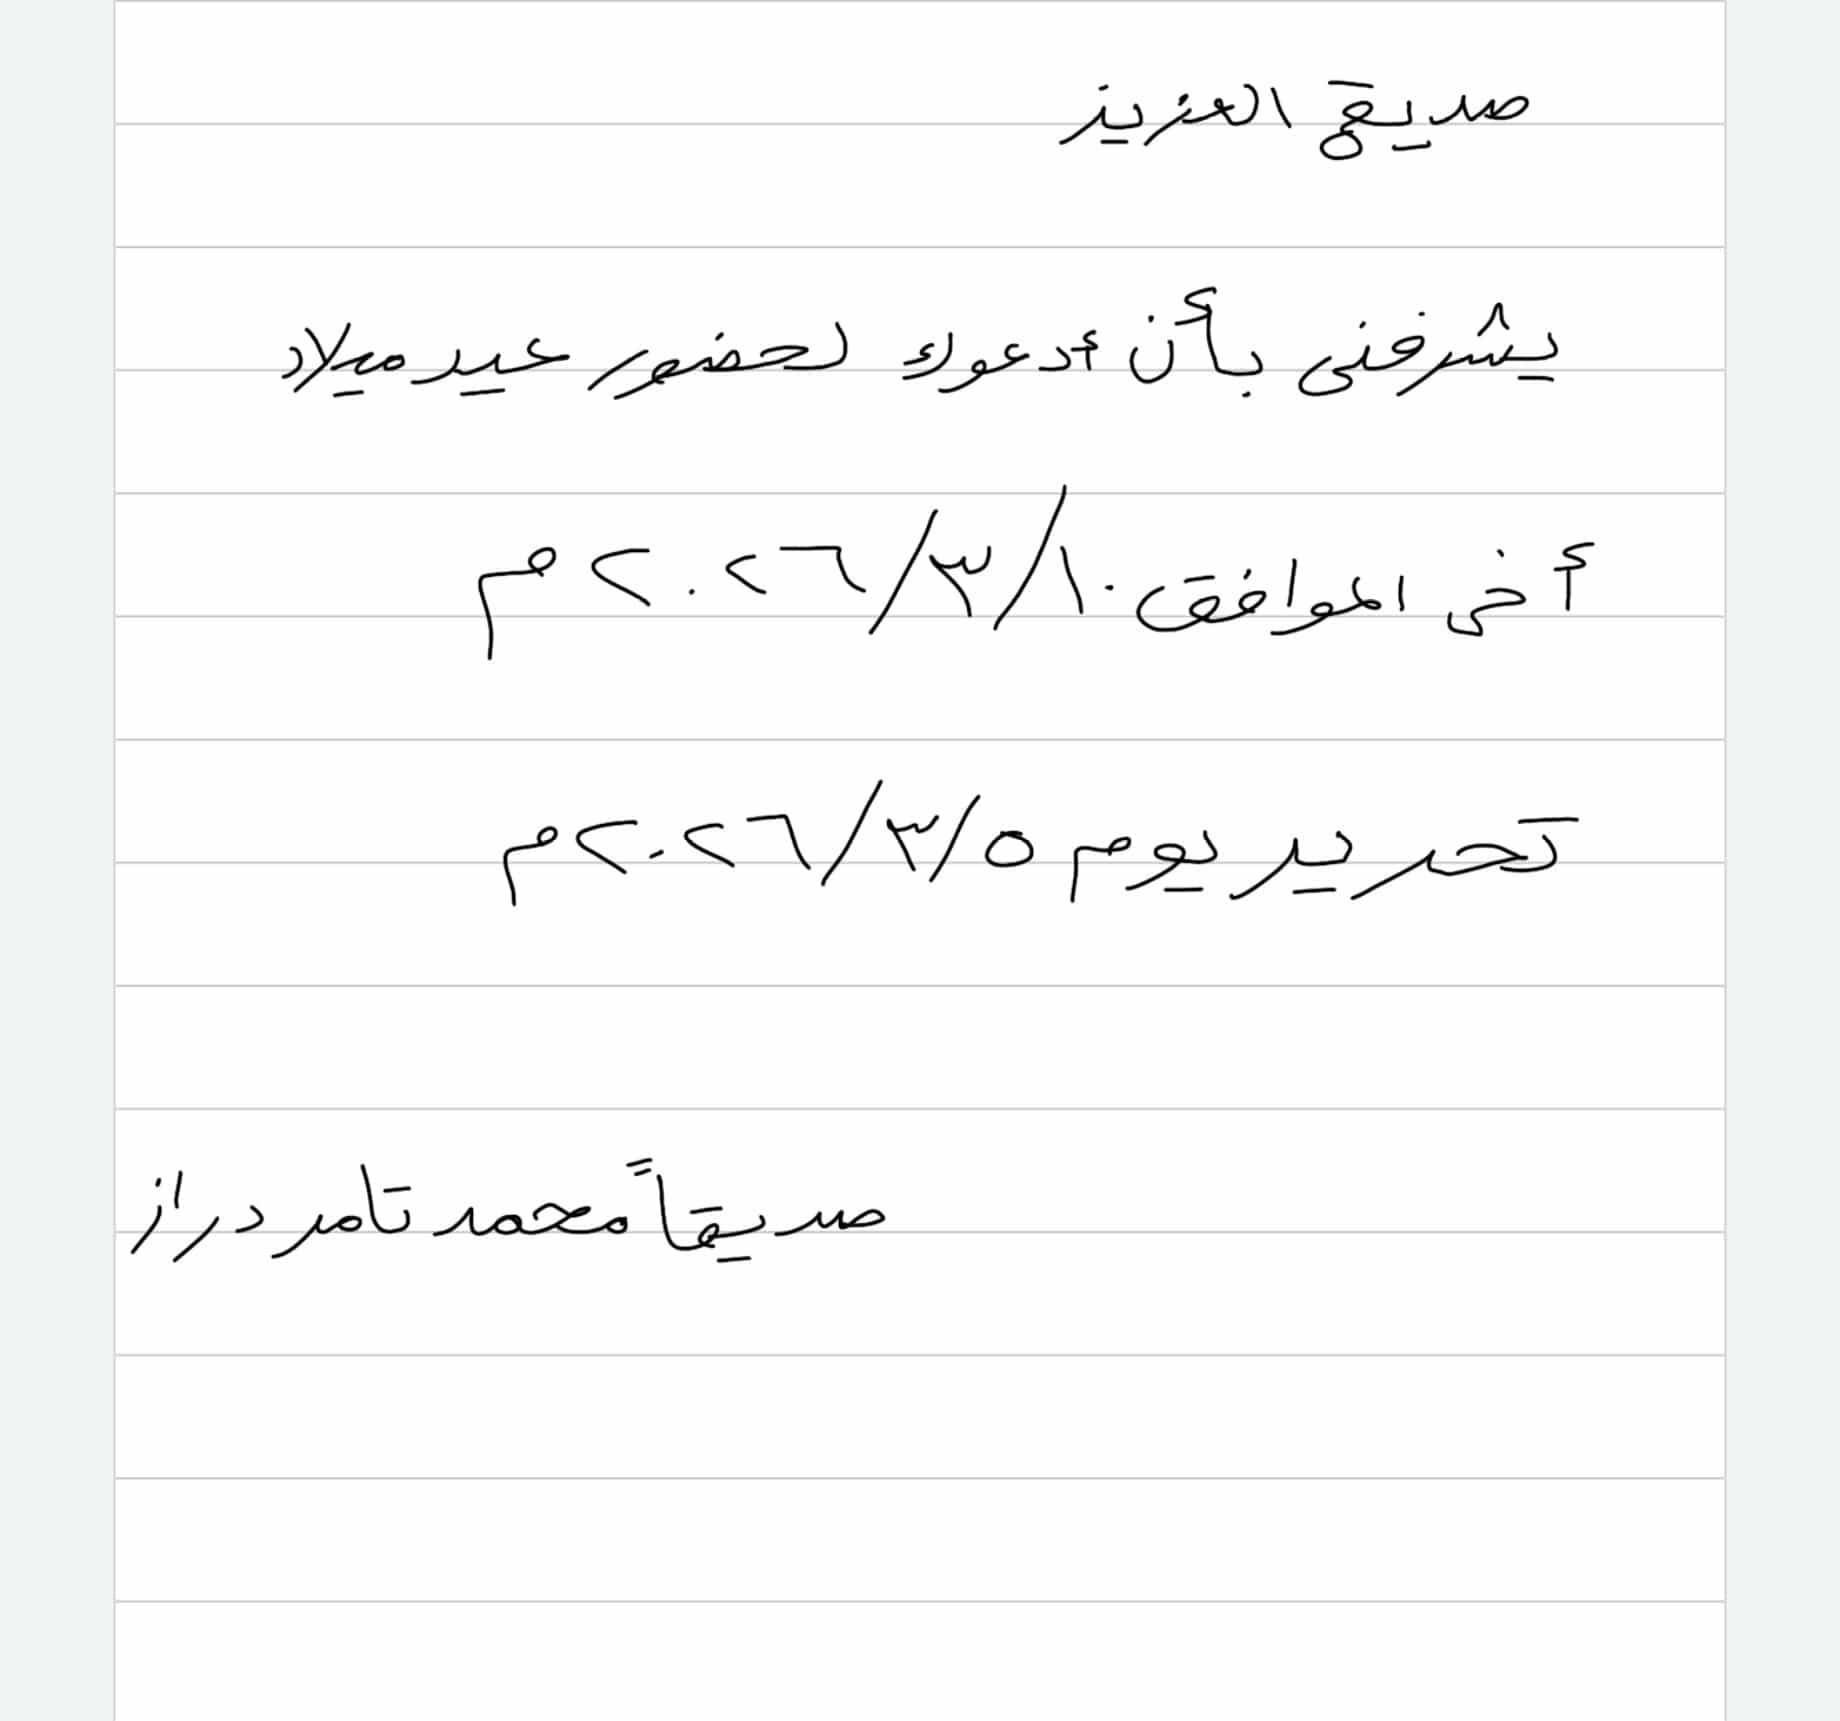 صديقى العزيز
يشرفنى بأن أدعوك لحضور عيد ميلاد
أخى الموافق ١٠/٣/٢٠٢٦م
تحرير يوم ٥/٣/٢٠٢٦م
صديقاً محمد تامر دراز